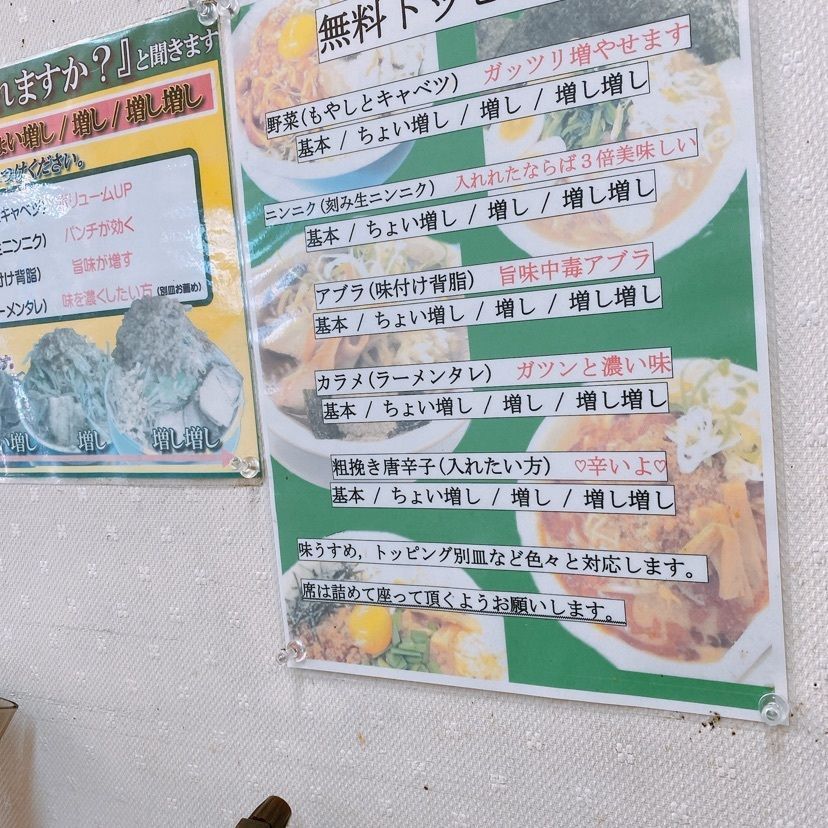 れますか？』と聞きます
ょい増し / 増し / 増し増し
ください。
キャベツ) ボリュームUP
生ニンニク) パンチが効く
付け背脂) 旨味が増す
ラーメンタレ) 味を濃くしたい方 (別皿お薦め)
い増し 増し 増し増し
無料トッピ
野菜(もやしとキャベツ) ガッツリ増やせます
基本 / ちょい増し / 増し / 増し増し
ニンニク(刻み生ニンニク) 入れれたならば３倍美味しい
基本 / ちょい増し / 増し / 増し増し
アブラ(味付け背脂) 旨味中毒アブラ
基本 / ちょい増し / 増し / 増し増し
カラメ(ラーメンタレ) ガツンと濃い味
基本 / ちょい増し / 増し / 増し増し
粗挽き唐辛子(入れたい方) ♡辛いよ♡
基本 / ちょい増し / 増し / 増し増し
味うすめ，トッピング別皿など色々と対応します。
席は詰めて座って頂くようお願いします。